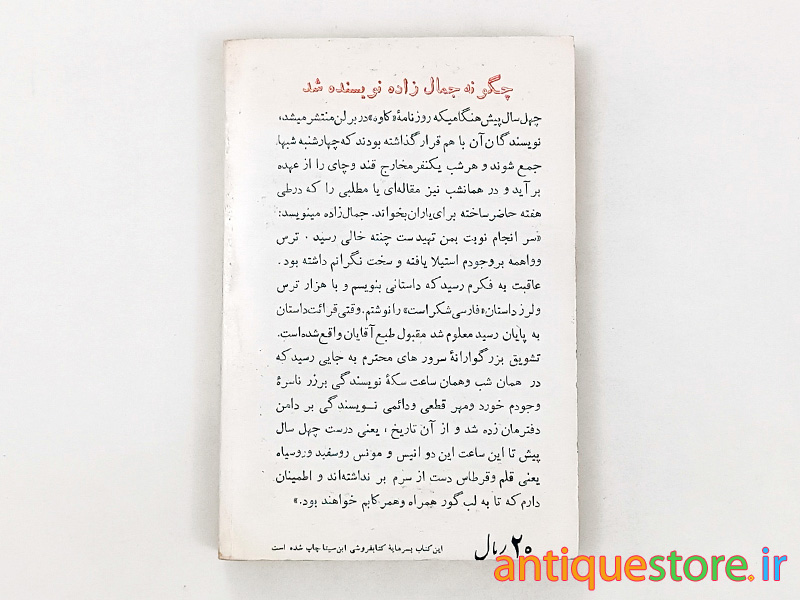 چگونه جمال زاده نویسنده شد
چهل سال پیش هنگامیکه روزنامهٔ «کاوه» در برلن منتشر میشد،
نویسندگان آن با هم قرار گذاشته بودند که چهارشنبه شبها
جمع شوند و هر شب یکنفر مخارج قند و چای را از عهده
برآید و در همانشب نیز مقاله‌ای یا مطلبی را که در طی
هفته حاضر ساخته برای یاران بخواند. جمال‌زاده مینویسد:
«سر انجام نوبت بمن تهیدست چنته خالی رسید . ترس
و واهمه بر وجودم استیلا یافته و سخت نگرانم داشته بود .
عاقبت به فکرم رسید که داستانی بنویسم و با هزار ترس
و لرز داستان «فارسی شکر است» را نوشتم. وقتی قرائت داستان
به پایان رسید معلوم شد مقبول طبع آقایان واقع شده است.
تشویق بزرگوارانهٔ سرور های محترم به جایی رسید که
در همان شب و همان ساعت سکهٔ نویسندگی بر زر ناسرهٔ
وجودم خورد و مهر قطعی و دائمی نویسندگی بر دامن
دفترمان زده شد و از آن تاریخ ، یعنی درست چهل سال
پیش تا این ساعت این دو انیس و مونس روسفید و روسیاه
یعنی قلم و قرطاس دست از سرم بر نداشته‌اند و اطمینان
دارم که تا به لب گور همراه و همرکابم خواهند بود.»
۲۰ ریال
این کتاب بسرمایهٔ کتابفروشی ابن سینا چاپ شده است
antiquestore.ir